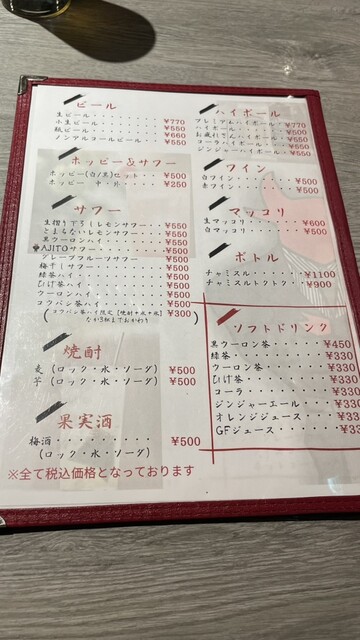 ビール
生ビール・・・・・・・
小生ビール・・・・・・¥770
瓶ビール・・・・・・・¥550
ノンアルコールビール・・¥660
¥550
ホッピー&サワー
ホッピー(白/黒)セット・・¥500
ホッピー 中・外・・・・¥250
サワー
生搾り下ろしレモンサワー・・¥550
とまらないレモンサワー・・・¥550
黒ウーロンハイ・・・・・¥550
AJITOサワー・・・・・¥550
グレープフルーツサワー・・¥500
梅干しサワー・・・・・・¥500
緑茶ハイ・・・・・・・¥500
ひげ茶ハイ・・・・・・¥500
ウーロンハイ・・・・・¥500
コウバシ茶ハイ・・・・・¥500
¥300
焼酎
麦 (ロック・水・ソーダ) ¥500
芋 (ロック・水・ソーダ) ¥500
果実酒
梅酒・・・・・・・・・¥500
(ロック・水・ソーダ)
※全て税込価格となっております
ハイボール
プレミアムハイボール・・¥770
ハイボール・・・・・・¥550
ハイボール・・¥500
コーラハイボール・・・¥550
ジンジャーハイボール・・¥550
ワイン
白ワイン・・・・・・¥500
赤ワイン・・・・・・¥500
マッコリ
生マッコリ・・・・・¥600
白マッコリ・・・・・¥500
ボトル
チャミスル・・・・・¥1100
チャミスルトクトク・・¥900
ソフトドリンク
黒ウーロン茶・・・・・¥450
緑茶・・・・・・・・¥330
ウーロン茶・・・・・¥330
ひげ茶・・・・・・・¥330
コーラ・・・・・・・¥330
ジンジャーエール・・・¥330
オレンジジュース・・・¥330
GFジュース・・・・・¥330